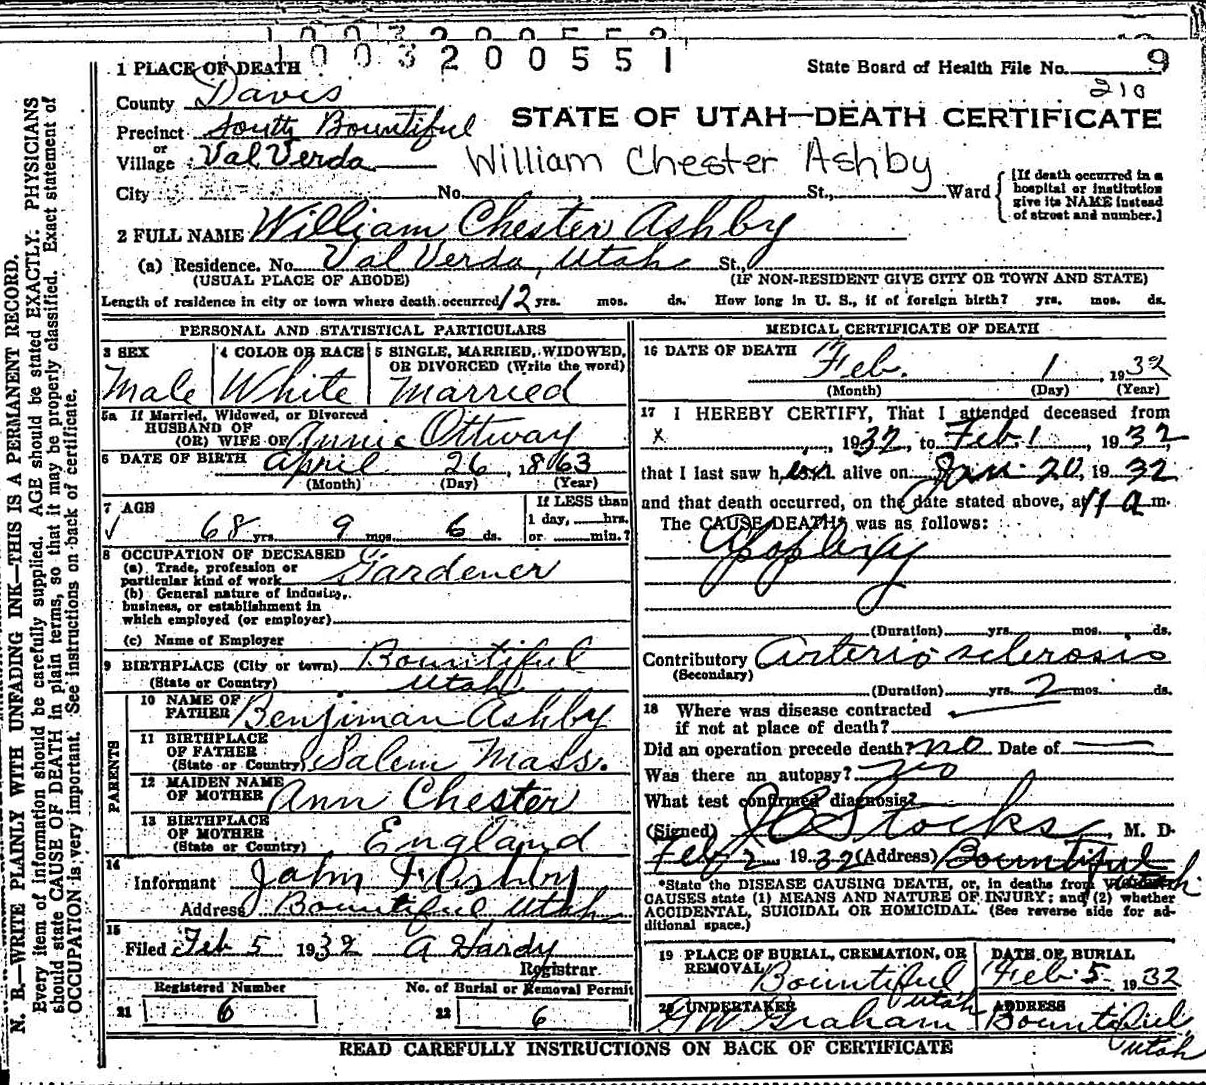 1003200551
1 PLACE OF DEATH
State Board of Health File No. 9
210
County Davis
STATE OF UTAH—DEATH CERTIFICATE
Precinct South Bountiful
or
Village Val Verda
William Chester Ashby
City No. St., Ward
[If death occurred in a
hospital or institution
give its NAME instead
of street and number.]
2 FULL NAME William Chester Ashby
(a) Residence. No. Val Verda, Utah St.,
(USUAL PLACE OF ABODE) (IF NON-RESIDENT GIVE CITY OR TOWN AND STATE)
Length of residence in city or town where death occurred 12 yrs. mos. ds. How long in U. S., if of foreign birth? yrs. mos. ds.
PERSONAL AND STATISTICAL PARTICULARS
3 SEX
Male
4 COLOR OR RACE
White
5 SINGLE, MARRIED, WIDOWED,
OR DIVORCED (Write the word)
Married
5a If Married, Widowed, or Divorced
HUSBAND OF
(OR) WIFE OF Annie Ottway
6 DATE OF BIRTH April 26, 1863
(Month) (Day) (Year)
7 AGE
68 yrs. 9 mos. 6 ds.
If LESS than
1 day, hrs.
or min.?
8 OCCUPATION OF DECEASED
(a) Trade, profession or
particular kind of work Gardener
(b) General nature of industry,
business, or establishment in
which employed (or employer)
(c) Name of Employer
9 BIRTHPLACE (City or town) Bountiful
(State or Country) Utah
PARENTS
10 NAME OF
FATHER Benjiman Ashby
11 BIRTHPLACE
OF FATHER
(State or Country) Salem Mass.
12 MAIDEN NAME
OF MOTHER Ann Chester
13 BIRTHPLACE
OF MOTHER
(State or Country) England
14
Informant John F. Ashby
Address Bountiful Utah
15
Filed Feb 5 1932 A Hardy
Registrar.
Registered Number No. of Burial or Removal Permit
21 6 22 6
MEDICAL CERTIFICATE OF DEATH
16 DATE OF DEATH
Feb. 1, 1932
(Month) (Day) (Year)
17 I HEREBY CERTIFY, That I attended deceased from
x , 1932, to Feb 1, 1932
that I last saw him alive on Jan 20, 1932
and that death occurred, on the date stated above, at 11 a m.
The CAUSE DEATH was as follows:
Apoplexy
(Duration) yrs. mos. ds.
Contributory Arterio sclerosis
(Secondary)
(Duration) yrs. 2 mos. ds.
18 Where was disease contracted
if not at place of death?
Did an operation precede death? no Date of —
Was there an autopsy? no
What test confirmed diagnosis?
(Signed) Stocks, M. D.
Feb 2 1932 (Address) Bountiful
Utah
*State the DISEASE CAUSING DEATH, or, in deaths from
CAUSES state (1) MEANS AND NATURE OF INJURY; and (2) whether
ACCIDENTAL, SUICIDAL OR HOMICIDAL. (See reverse side for ad-
ditional space.)
19 PLACE OF BURIAL, CREMATION, OR
REMOVAL Bountiful
Utah
DATE OF BURIAL
Feb 5 1932
20 UNDERTAKER
GW Graham
ADDRESS
Bountiful
Utah
READ CAREFULLY INSTRUCTIONS ON BACK OF CERTIFICATE
N. B.—WRITE PLAINLY WITH UNFADING INK—THIS IS A PERMANENT RECORD.
Every item of information should be carefully supplied. AGE should be stated EXACTLY. PHYSICIANS
should state CAUSE OF DEATH in plain terms, so that it may be properly classified. Exact statement of
OCCUPATION is very important. See instructions on back of certificate.